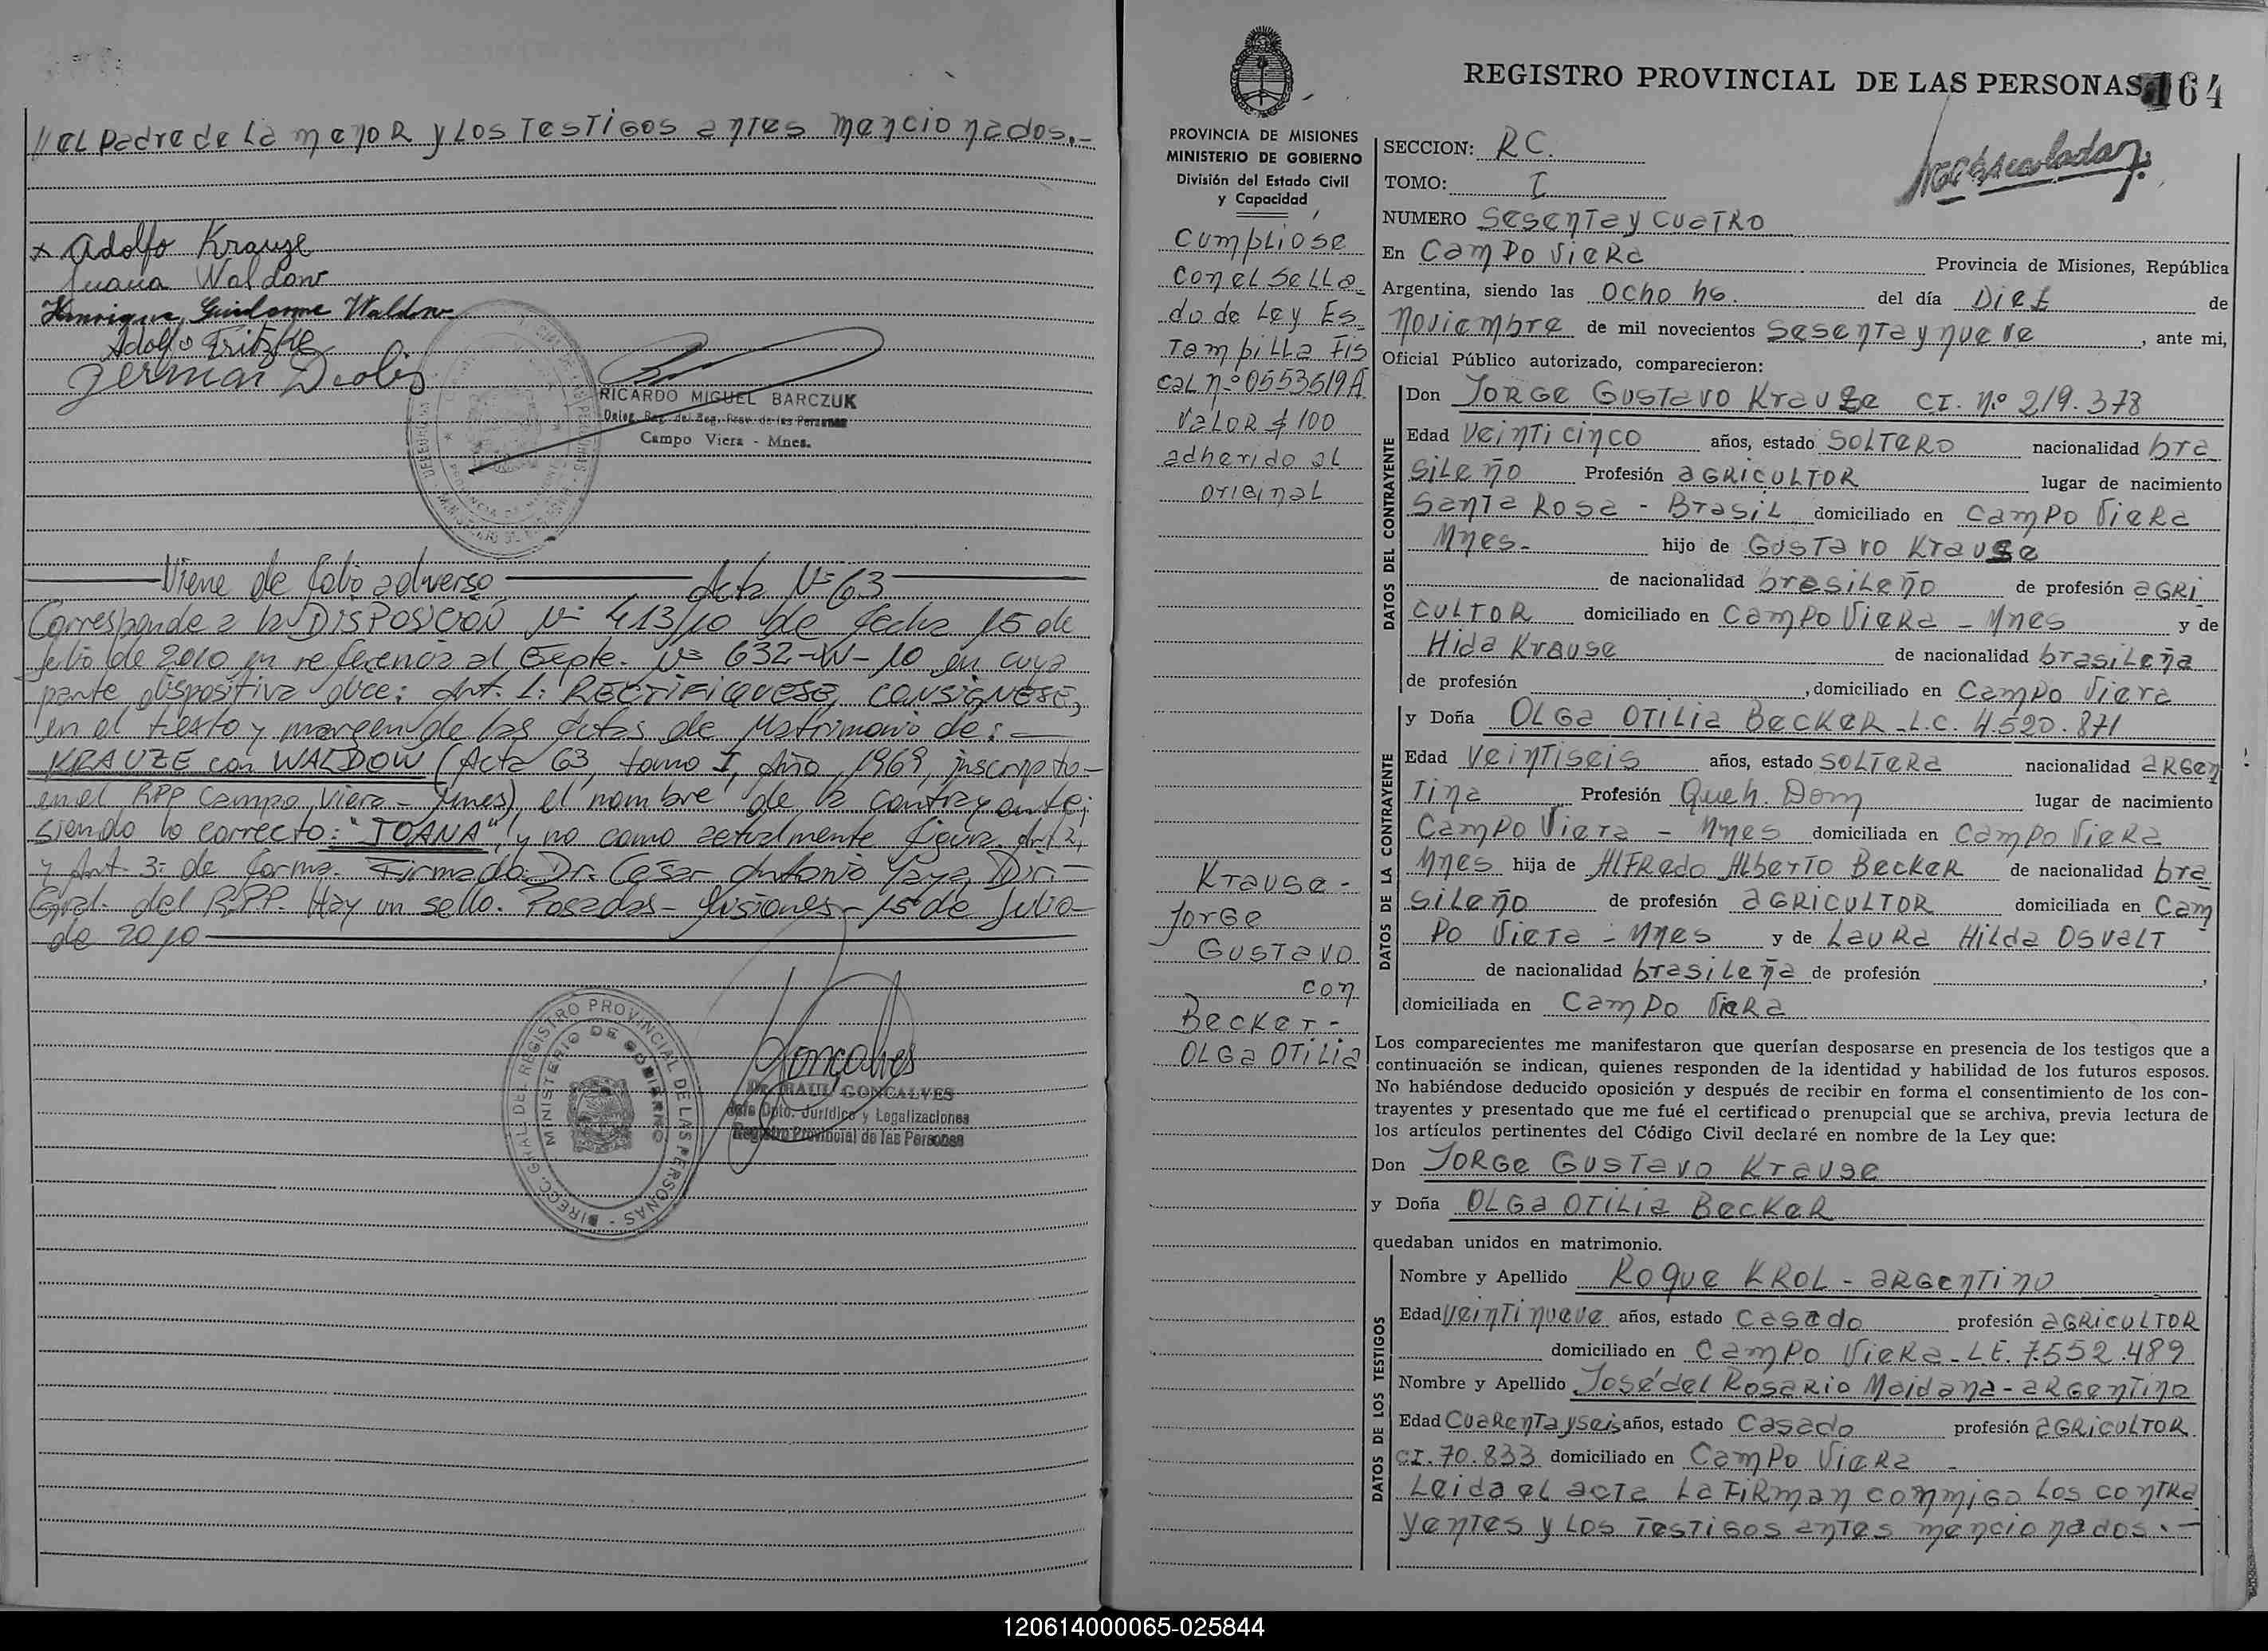 // el padre de la menor y los testigos antes mencionados.-
x Adolfo Krauze
Juana Waldow
Henrique Guilerme Waldow
Adolfo Fritzke
German
RICARDO MIGUEL BARCZUK
Deleg. Reg. del Reg. Prov. de las Personas
Campo Viera - Mnes.
Viene de folio adverso Acta Nº 63
Corresponde a la DISPOSICION Nº 413/10 de fecha 15 de
Julio de 2010 en referencia al Expte. Nº 632-W-10 en cuya
parte dispositiva dice: Art. 1: RECTIFIQUESE, CONSIGNESE,
en el texto y margen de las Actas de Matrimonio de:
KRAUZE con WALDOW (Acta 63, tomo I, Año 1969, inscripto-
en el RPP Campo Viera - Mnes), el nombre de la contrayente;
siendo lo correcto: "JOANA", y no como actualmente figura. Art 2,
y Art. 3: de forma. Firmado: Dr. César Antonio Dir.-
Gral. del R.P.P. Hay un sello. Posadas - Misiones - 15 de Julio-
de 2010
DIRECC. GRAL. DEL REGISTRO PROVINCIAL DE LAS PERSONAS
MINISTERIO DE GOBIERNO
Goncalves
Dr. RAUL GONCALVES
Jefe Dpto. Jurídico y Legalizaciones
Registro Provincial de las Personas
REGISTRO PROVINCIAL DE LAS PERSONAS 164
PROVINCIA DE MISIONES
MINISTERIO DE GOBIERNO
División del Estado Civil
y Capacidad
Cumpliose
con el sella
do de Ley Es
tampilla Fis
cal nº 0553519A
Valor $ 100
adherido al
original
Krause-
Jorge
Gustavo
con
Becker-
Olga Otilia
SECCION: RC.
TOMO: I
NUMERO Sesenta y cuatro
En Campo Viera Provincia de Misiones, República
Argentina, siendo las ocho hs. del día Diez de
Noviembre de mil novecientos sesenta y nueve, ante mi,
Oficial Público autorizado, comparecieron:
DATOS DEL CONTRAYENTE
Don Jorge Gustavo Krause CI. nº 219.378
Edad Veinticinco años, estado SOLTERO nacionalidad bra
sileño Profesión AGRICULTOR lugar de nacimiento
Santa Rosa - Brasil domiciliado en Campo Viera
Mnes- hijo de Gustavo Krause
de nacionalidad brasileño de profesión AGRI
CULTOR domiciliado en Campo Viera - Mnes y de
Hida Krause de nacionalidad brasileña
de profesión , domiciliado en Campo Viera
DATOS DE LA CONTRAYENTE
y Doña Olga Otilia Becker-L.C. 4.520.871
Edad Veintiseis años, estado SOLTERA nacionalidad argen
tina Profesión Queh. Dom lugar de nacimiento
Campo Viera - Mnes domiciliada en Campo Viera
Mnes hija de Alfredo Alberto Becker de nacionalidad bra
sileño de profesión AGRICULTOR domiciliada en Cam
po Viera - Mnes y de Laura Hilda Osvalt
de nacionalidad brasileña de profesión ,
domiciliada en Campo Viera
Los comparecientes me manifestaron que querían desposarse en presencia de los testigos que a
continuación se indican, quienes responden de la identidad y habilidad de los futuros esposos.
No habiéndose deducido oposición y después de recibir en forma el consentimiento de los con-
trayentes y presentado que me fué el certificado prenupcial que se archiva, previa lectura de
los artículos pertinentes del Código Civil declaré en nombre de la Ley que:
Don Jorge Gustavo Krause
y Doña Olga Otilia Becker
quedaban unidos en matrimonio.
DATOS DE LOS TESTIGOS
Nombre y Apellido Roque Krol - argentino
Edad Veintinueve años, estado casado profesión AGRICULTOR
domiciliado en Campo Viera - L.E. 7.552.489
Nombre y Apellido José del Rosario Maidana - argentino
Edad Cuarenta y seis años, estado Casado profesión AGRICULTOR
CI. 70.833 domiciliado en Campo Viera -
Leida el acta la firman conmigo los contra
yentes y los testigos antes mencionados.-
120614000065-025844